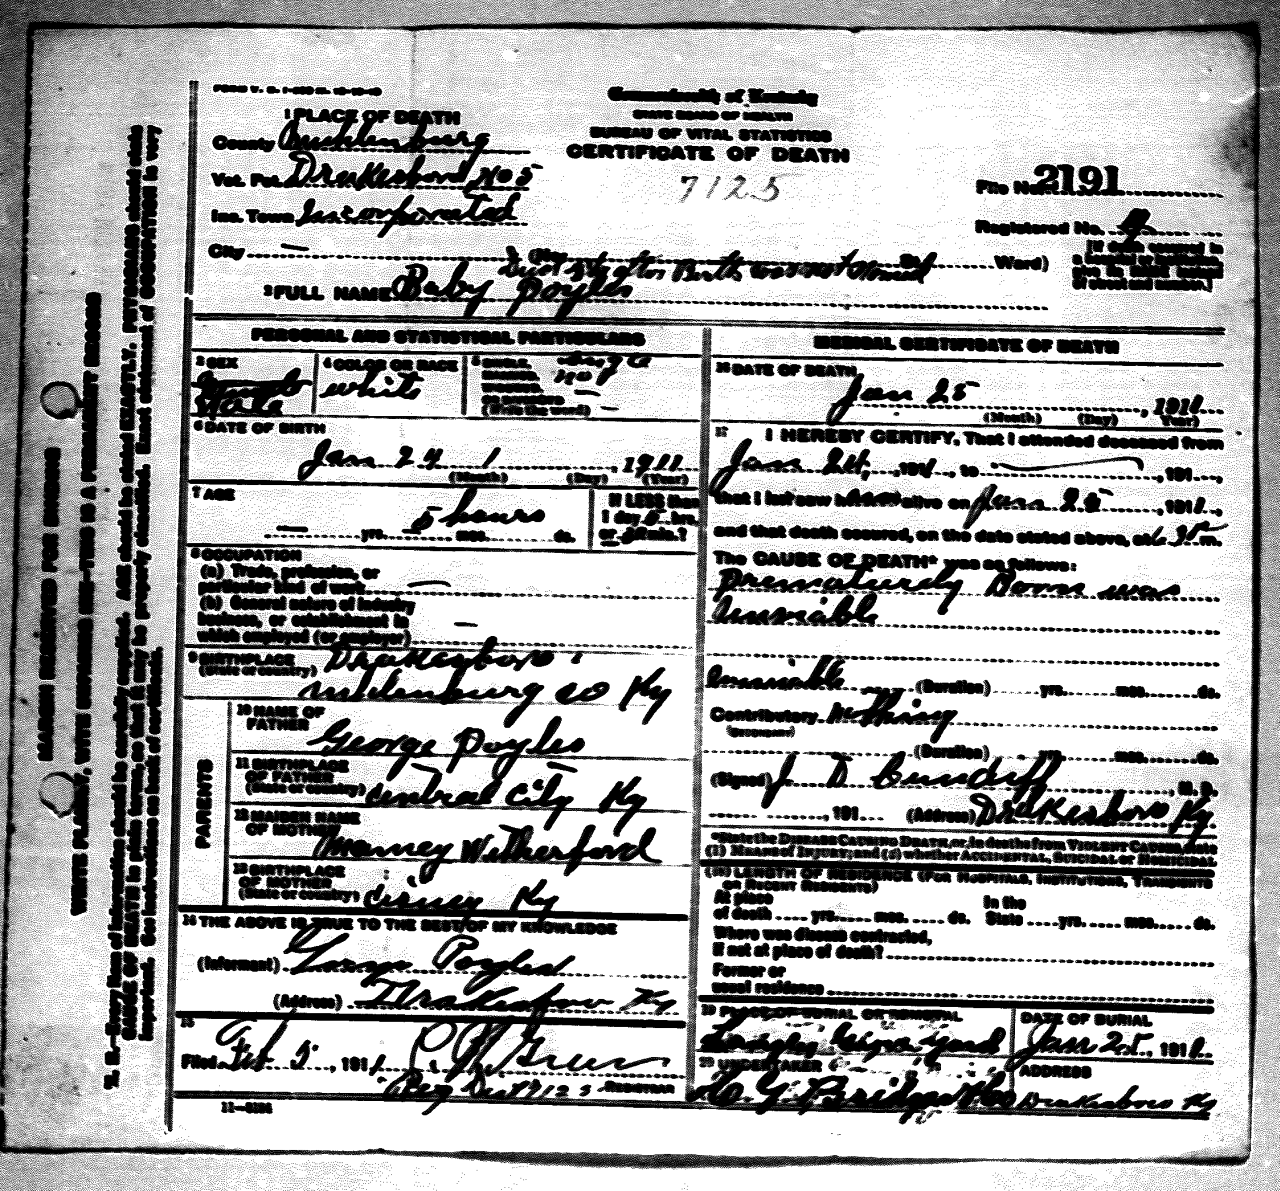 Commonwealth of Kentucky
STATE BOARD OF HEALTH
BUREAU OF VITAL STATISTICS
CERTIFICATE OF DEATH
7125
1 PLACE OF DEATH
County Muhlenburg
Vot. Pct. Drakesboro No 5
Inc. Town Incorporated
City —
Ward)
File No. 2191
Registered No.
[If death occured in
a hospital or institution,
give its NAME instead
of street and number.]
Birth was not
2 FULL NAME Baby Poyles
PERSONAL AND STATISTICAL PARTICULARS
3 SEX Male
4 COLOR OR RACE white
5 SINGLE, Single
(Write the word)
6 DATE OF BIRTH
Jan 24 1, 1911
(Month) (Day) (Year)
7 AGE
— yrs. 5 hours mos. ds.
If LESS than
1 day 5 hrs.
or min.?
8 OCCUPATION
(a) Trade, profession, or
particular kind of work —
(b) General nature of industry
business, or establishment in
which employed (or employer) —
9 BIRTHPLACE
(State or country)
Drakesboro
Muhlenburg co Ky
PARENTS
10 NAME OF
FATHER
George Poyles
11 BIRTHPLACE
OF FATHER
(State or country) Central City Ky
12 MAIDEN NAME
OF MOTHER
Witherford
13 BIRTHPLACE
OF MOTHER
(State or country) Ky
14 THE ABOVE IS TRUE TO THE BEST OF MY KNOWLEDGE
(Informant) Poyles
(Address) Drakesboro Ky
15
Filed Feb 5, 1911
REGISTRAR
11-3184
MEDICAL CERTIFICATE OF DEATH
16 DATE OF DEATH
Jan 25, 1911
(Month) (Day) Year)
17 I HEREBY CERTIFY, That I attended deceased from
Jan 24, 1911, to , 191
that I last saw alive on Jan 25, 1911,
and that death occured, on the date stated above, at m.
The CAUSE OF DEATH* was as follows:
Prematurely Born was
(Duration) yrs. mos. ds.
Contributory Nothing
(SECONDARY)
(Duration) yrs. mos. ds.
(Signed) J D Cundiff, M. D.
, 191 (Address) Drakesboro Ky
*State the DISEASE CAUSING DEATH, or, in deaths from VIOLENT CAUSES, state
(1) MEANS OF INJURY; and (2) whether ACCIDENTAL, SUICIDAL or HOMICIDAL
(18) LENGTH OF RESIDENCE (FOR HOSPITALS, INSTITUTIONS, TRANSIENTS
OR RECENT RESIDENTS)
At place In the
of death yrs. mos. ds. State yrs. mos. ds.
Where was disease contracted,
if not at place of death?
Former or
usual residence
19 PLACE OF BURIAL OR REMOVAL
Yard
DATE OF BURIAL
Jan 25, 1911
20 UNDERTAKER
ADDRESS
Drakesboro Ky
MARGIN RESERVED FOR BINDING
WRITE PLAINLY, WITH UNFADING INK—THIS IS A PERMANENT RECORD
N. B.—Every item of information should be carefully supplied. AGE should be stated EXACTLY. PHYSICIANS should state
CAUSE OF DEATH in plain terms, so that it may be properly classified. Exact statement of OCCUPATION is very
important. See instructions on back of certificate.